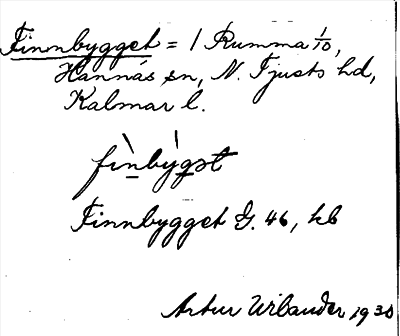 Finnbygget = 1 Rumma 1/10,
Hannäs sn, N. Tjusts hd,
Kalmar l.
fìnbỳgət
Finnbygget G. 46, kb
Artur Urbander 1930